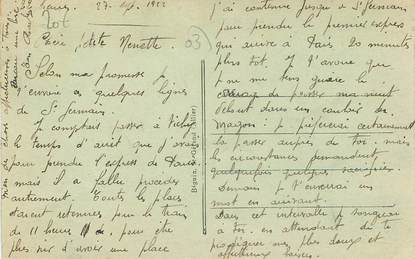 27 Sept. 1922
lot
Chère petite Nénette
03
Selon ma promesse je
t'envoie quelques lignes
de St Germain.
J comptais passer à Vichy
le temps d'arrêt que j'avais
pour prendre l'express de Paris
mais il a fallu procéder
autrement. Toutes les places
étaient retenues pour le train
de 11 heures et pour être
plus sûr d'avoir une place
j'ai continué jusqu'à St Germain
pour prendre le premier express
qui arrive à Paris 20 minutes
plus tôt. Je t'avoue que
de passer ma nuit
debout dans un couloir de
wagon. je préfèrerai certainement
la passer auprès de toi. mais
les circonstances demandent
quelquefois quelques sacrifices.
Demain je t'enverrai un
mot en arrivant.
Dans cet intervalle je songerai
à toi. en attendant de te
prodiguer mes plus doux et
affectueux baisers.